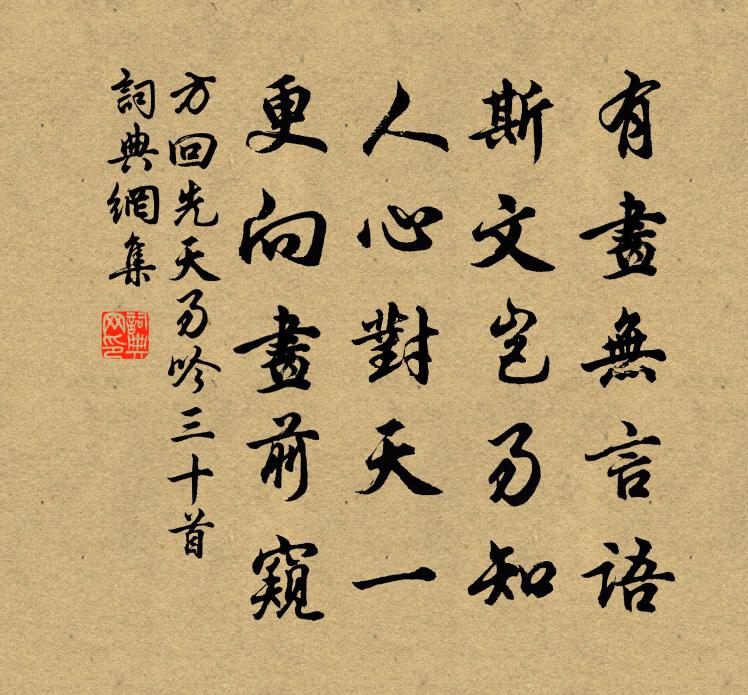 有畫無言語
斯文豈易知
人心對天一
更向畫前窺
方回先天易吟三十首
詞典網集
詞典網印